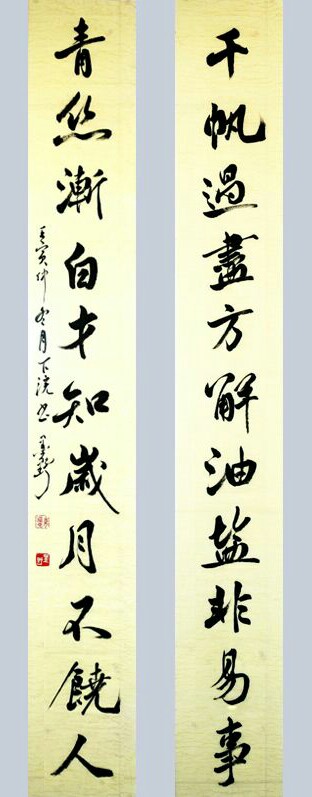 千帆過盡方解油盐非易事
青丝漸白才知歲月不饒人
壬寅仲冬月下浣书